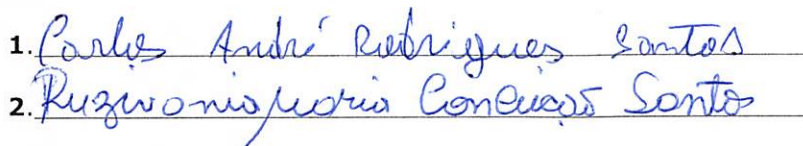 1. Carlos André Rodrigues Santos
2. Ruzivania Maria Conceição Santos